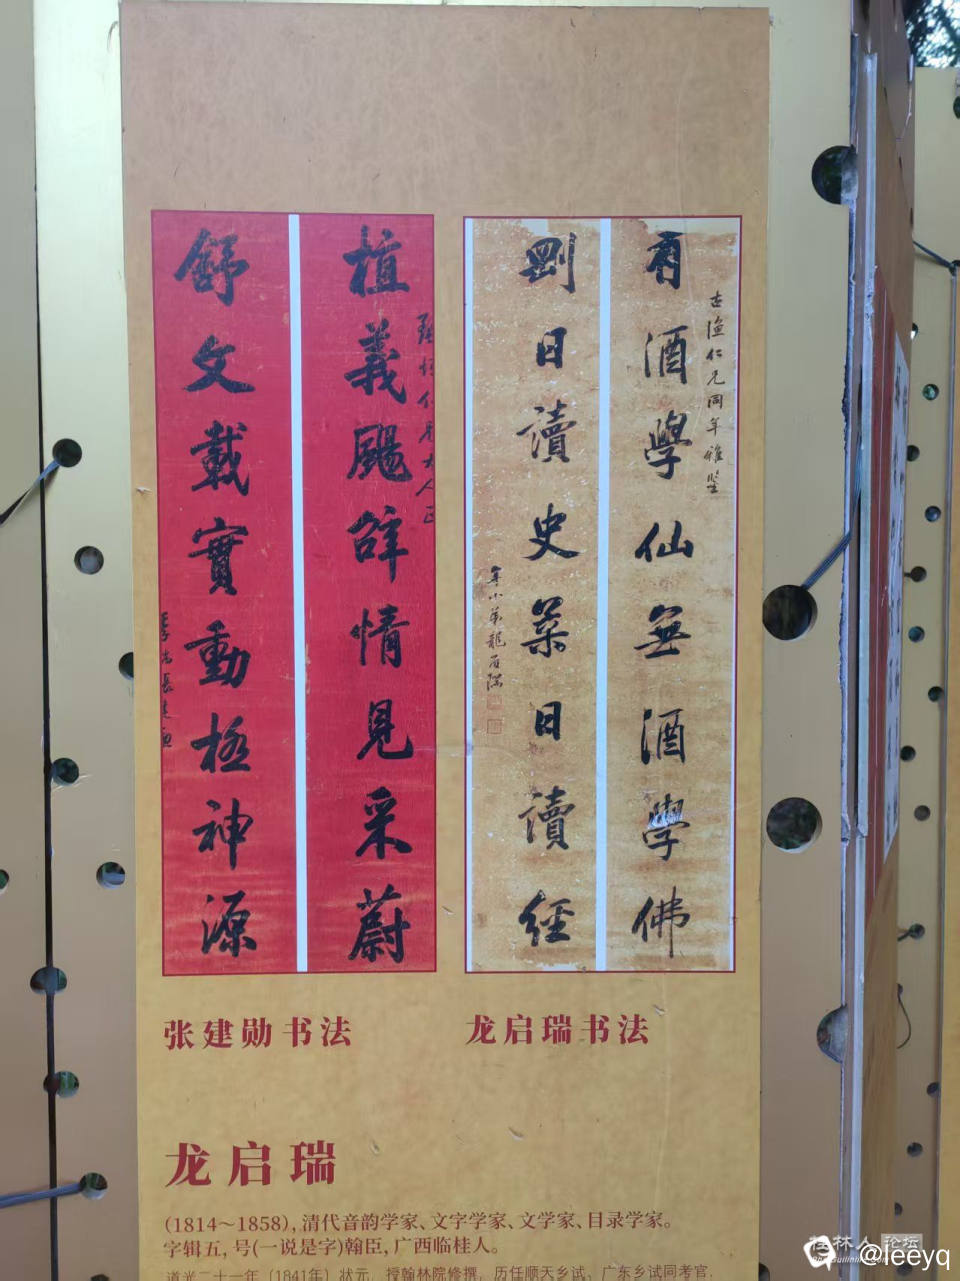 植義颺辭情見采蔚
舒文載實動極神源
古漁仁兄同年雅鑒
有酒學仙無酒學佛
剛日讀史柔日讀經
年小弟龍啟瑞
张建勋书法
龙启瑞书法
龙启瑞
(1814～1858)，清代音韵学家、文字学家、文学家、目录学家。
字辑五，号(一说是字)翰臣，广西临桂人。
道光二十一年（1841年）状元，授翰林院修撰，历任顺天乡试、广东乡试同考官，
桂林人论坛
@leeyq